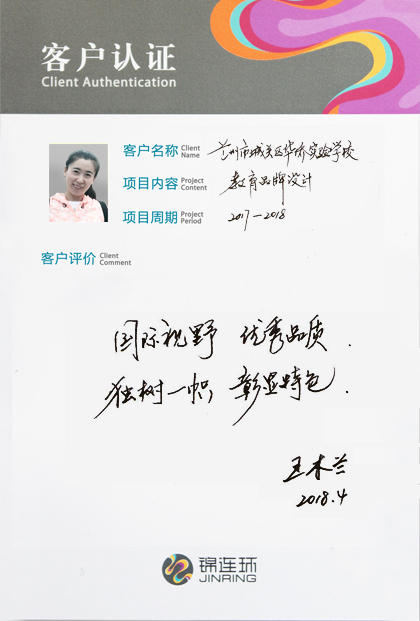 客户认证
Client Authentication
客户名称 Client Name 兰州市城关区华侨实验学校
项目内容 Project Content 教育品牌设计
项目周期 Project Period 2017—2018
客户评价 Client Comment
国际视野 优秀品质.
独树一帜, 彰显特色.
王木兰
2018.4
锦连环
JINRING